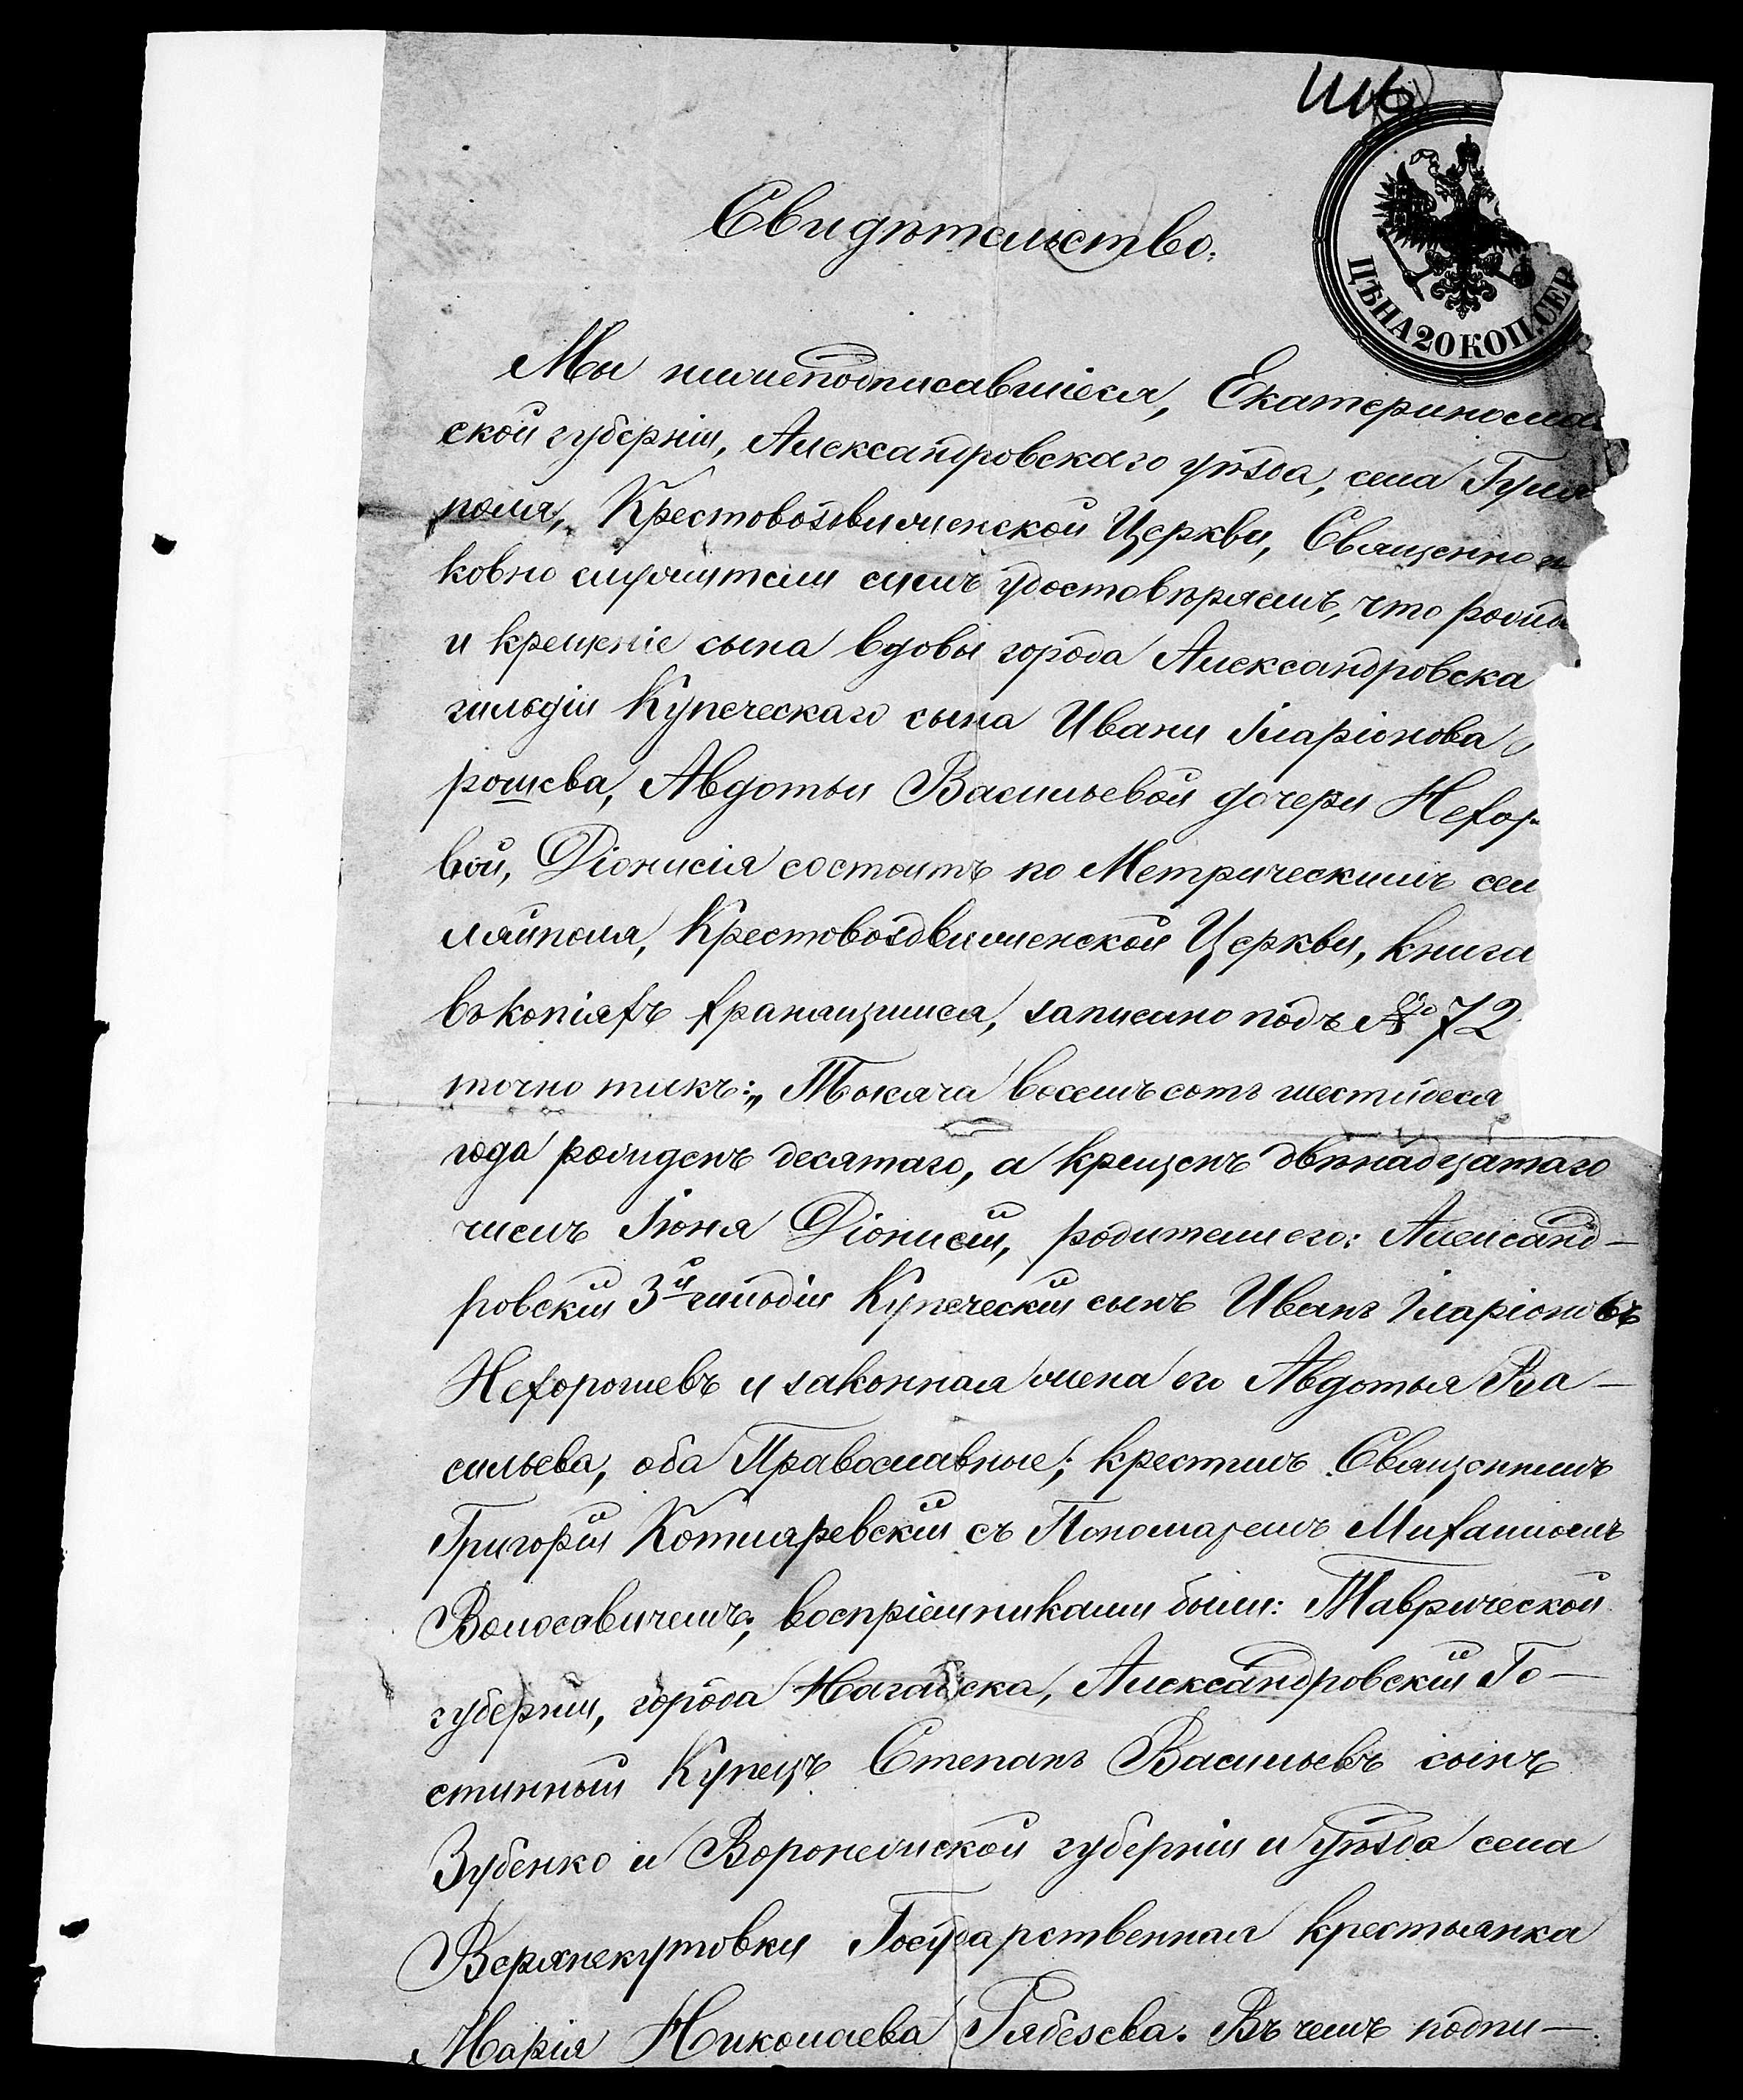 Свидѣтельство.
ЦѢНА 20 КОП. СЕР
Мы нижеподписавшіеся, Екатериносла
ской губерніи, Александровскаго уѣзда, села Гуля
поля, Крестовоздвиженской Церкви, Священно и
ковно служители симъ удостовѣряемъ, что рожде
и крещеніе сына вдовы города Александровска
гильдіи Купеческаго сына Ивана Иларіонова
рошева, Авдотьи Васильевой дочери Нехор
вой, Діонисія состоитъ по Метрическимъ сел
ляйполя, Крестовоздвиженской Церкви, книга
въ копіяхъ хранящимся, записано подъ № 72
точно такъ: „Тысяча восемьсотъ шестьдеся
года рожденъ десятаго, а крещенъ двѣнадцатаго
числъ Іюня Діонисій, родители его: Александ-
ровскій 3й гильдіи Купеческій сынъ Иванъ Иларіоновъ
Нехорошевъ и законная жена его Авдотья Ва-
сильева, оба Православные; крестилъ Священникъ
Григорій Котляревскій съ Пономаремъ Михаиломъ
Волосевичемъ; воспріемниками были: Таврической
губерніи, города Нагайска, Александровскій Го-
стинный Купецъ Степанъ Васильевъ сынъ
Зубенко и Воронежской губерніи и уѣзда села
Верхнекутовки Государственная крестьянка
Марія Николаева Рябезева. Въ чемъ подпи-